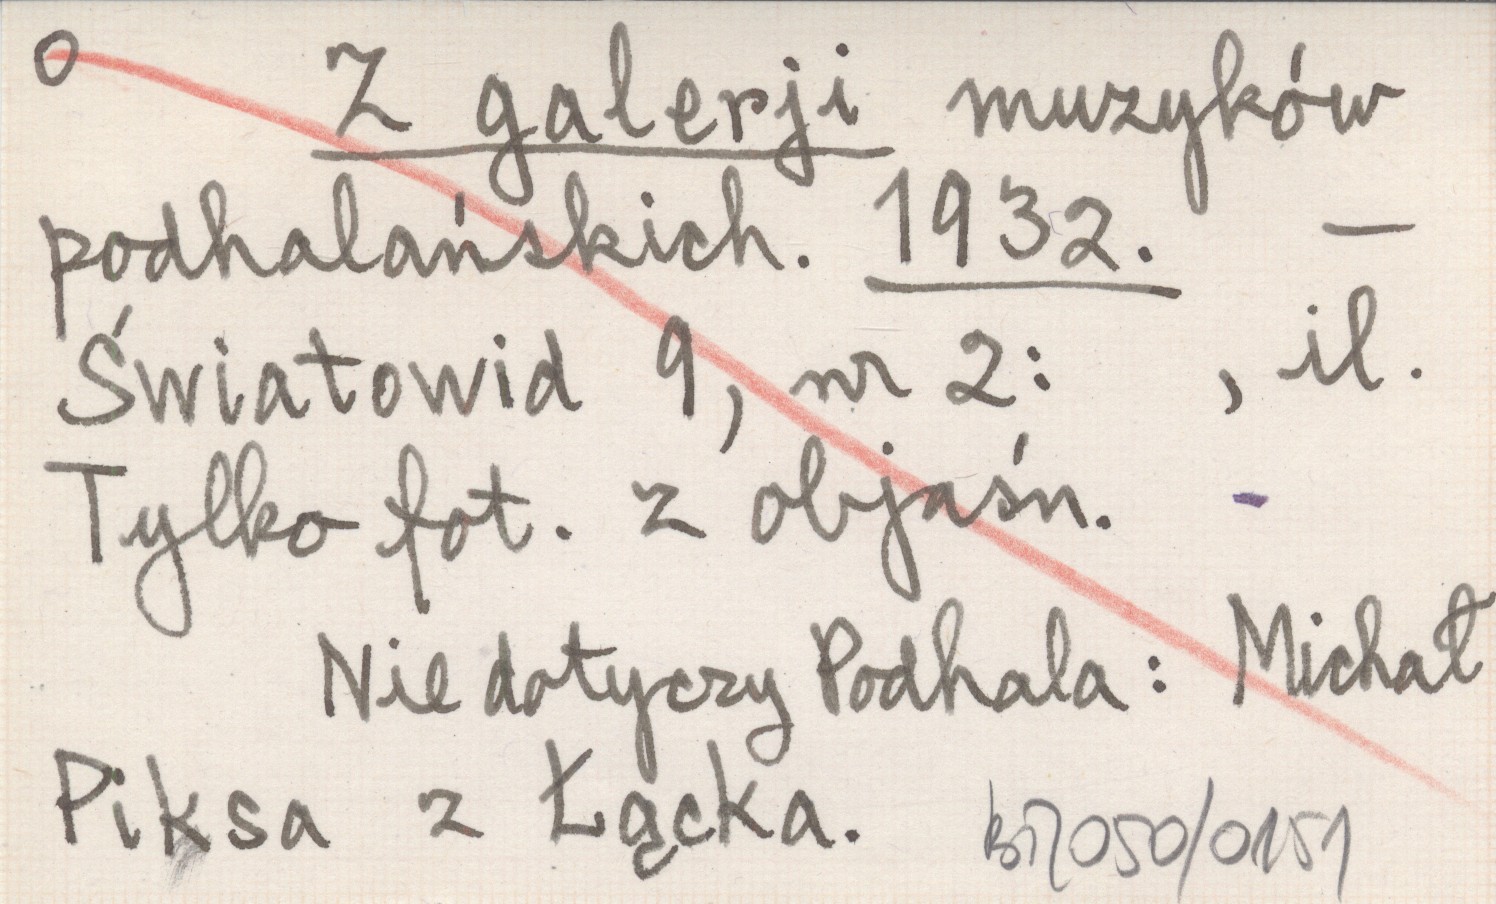 O Z galerji muzyków
podhalańskich. 1932. —
Światowid 9, nr 2: , il.
Tylko fot. z objaśn. -
Nie dotyczy Podhala: Michał
Piksa z Łącka.
050/0151